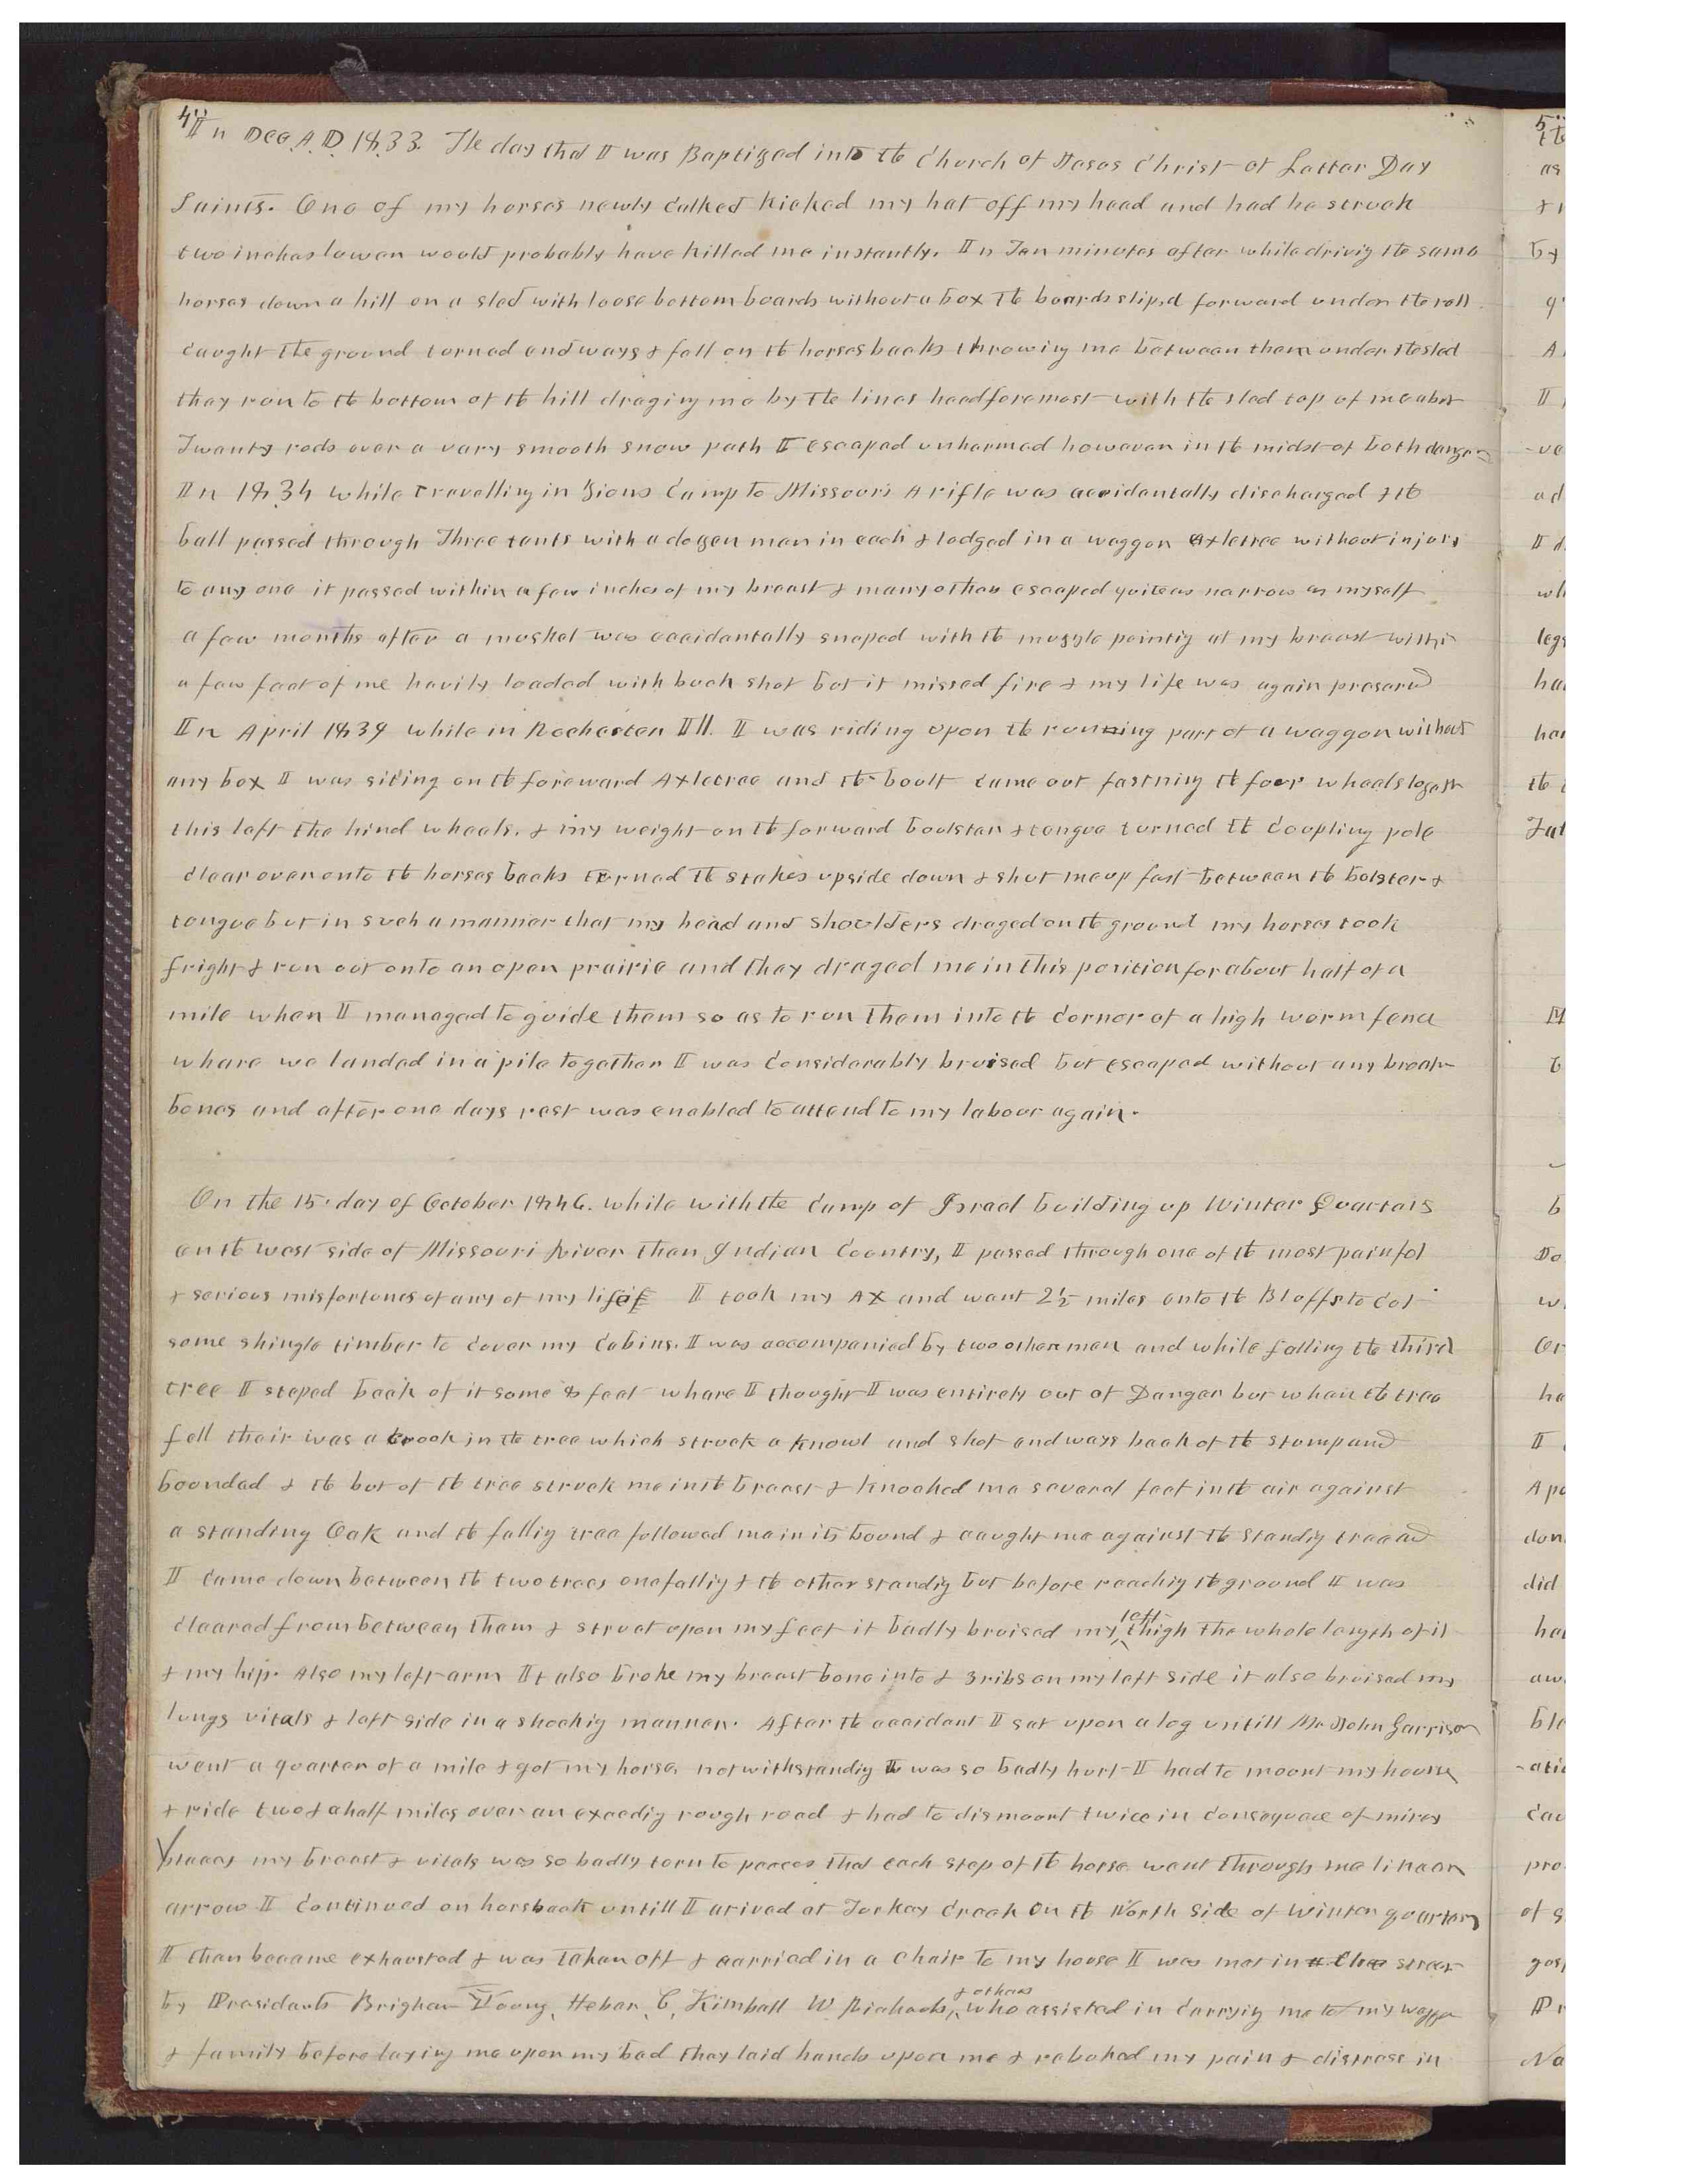 4
In Dec. A.D. 1833. The day that I was Baptized into the Church of Jesus Christ of Latter Day
Saints. One of my horses newly calked kicked my hat off my head and had he struck
two inches lower would probably have killed me instantly. In Ten minutes after while drivig the same
horses down a hill on a sled with loose bottom boards without a box the boards sliped forward under the roll
caught the ground turned endways & fell on the horses backs throwing me between them under the sled
they ran to the bottom of the hill draging me by the lines head foremost with the sled top of me about
Twenty rods over a very smooth snow path I escaped unharmed however in the midst of both dangers
In 1834 while travelling in Zions Camp to Missouri A rifle was accidentally discharged & the
ball passed through Three tents with a dozen men in each & lodged in a waggon axletree without injury
to any one it passed within a few inches of my breast & many others escaped quite as narrow as myself
a few months after a musket was accidentally snaped with the muzzle pointig at my breast within
a few feet of me havily loaded with buck shot but it missed fire & my life was again preserved
In April 1839 while in Rochester Ill. I was riding upon the running part of a waggon without
any box I was siting on the foreward Axletree and the boult came out fastning the four wheels togeth
this left the hind wheels. & my weight on the forward boulster & tongue turned the coupling pole
clear over onto the horses backs turned the stakes upside down & shut me up fast between the bolster &
tongue but in such a manner that my head and shoulders draged on the ground my horses took
fright & run out onto an open prairie and they draged me in this position for about half of a
mile when I managed to guide them so as to run them into the corner of a high worm fence
whare we landed in a pile together I was considerably bruised but escaped without any broken
bones and after one days rest was enabled to attend to my labour again.
On the 15. day of October 1846. while with the camp of Israel building up Winter Quarters
on the west side of Missouri River then Indian Country, I passed through one of the most painful
& serious misfortunes of any of my life I took my AX and went 2½ miles onto the Bluffs to cut
some shingle timber to cover my cabins. I was accompanied by two other men and while falling the third
tree I steped back of it some 8 feet whare I thought I was entirely out of Danger but when the tree
fell their was a crook in the tree which struck a knowl and shot endways back of the stump and
bounded & the but of the tree struck me in the breast & knocked me several feet in the air against
a standing Oak and the fallig tree followed me in its bound & caught me against the standig tree and
I came down between the two trees one fallig & the other standig but before reachig the ground I was
cleared from between them & struct upon my feet it badly bruised my left thigh the whole length of it
& my hip. Also my left arm It also broke my breast bone into & 3 ribs on my left side it also bruised my
lungs vitals & left side in a shockig manner. After the accident I sat upon a log untill Mr John Garrison
went a quarter of a mile & got my horse. notwithstandig I was so badly hurt I had to mount my hourse
& ride two & a half miles over an exceedig rough road & had to dismount twice in consequace of mirey
places my breast & vitals was so badly torn to peaces that each step of the horse went through me like an
arrow I continued on horsback untill I arived at Turkey Creek on the North side of Winter quarters
I then became exhausted & was taken off & carried in a chair to my house I was met in the street
by Presidents Brigham Young, Heber, C, Kimball W Richards, & others who assisted in carryig me to my waggon
& family before laying me upon my bed they laid hands upon me & rebuked my pain & distress in
5
as
by
A
I
-ve
ad
wh
legs
ha
har
the
b
Do
ha
I
Apo
don
did
ha
aw
-atio
cau
pro
of
gos
Na